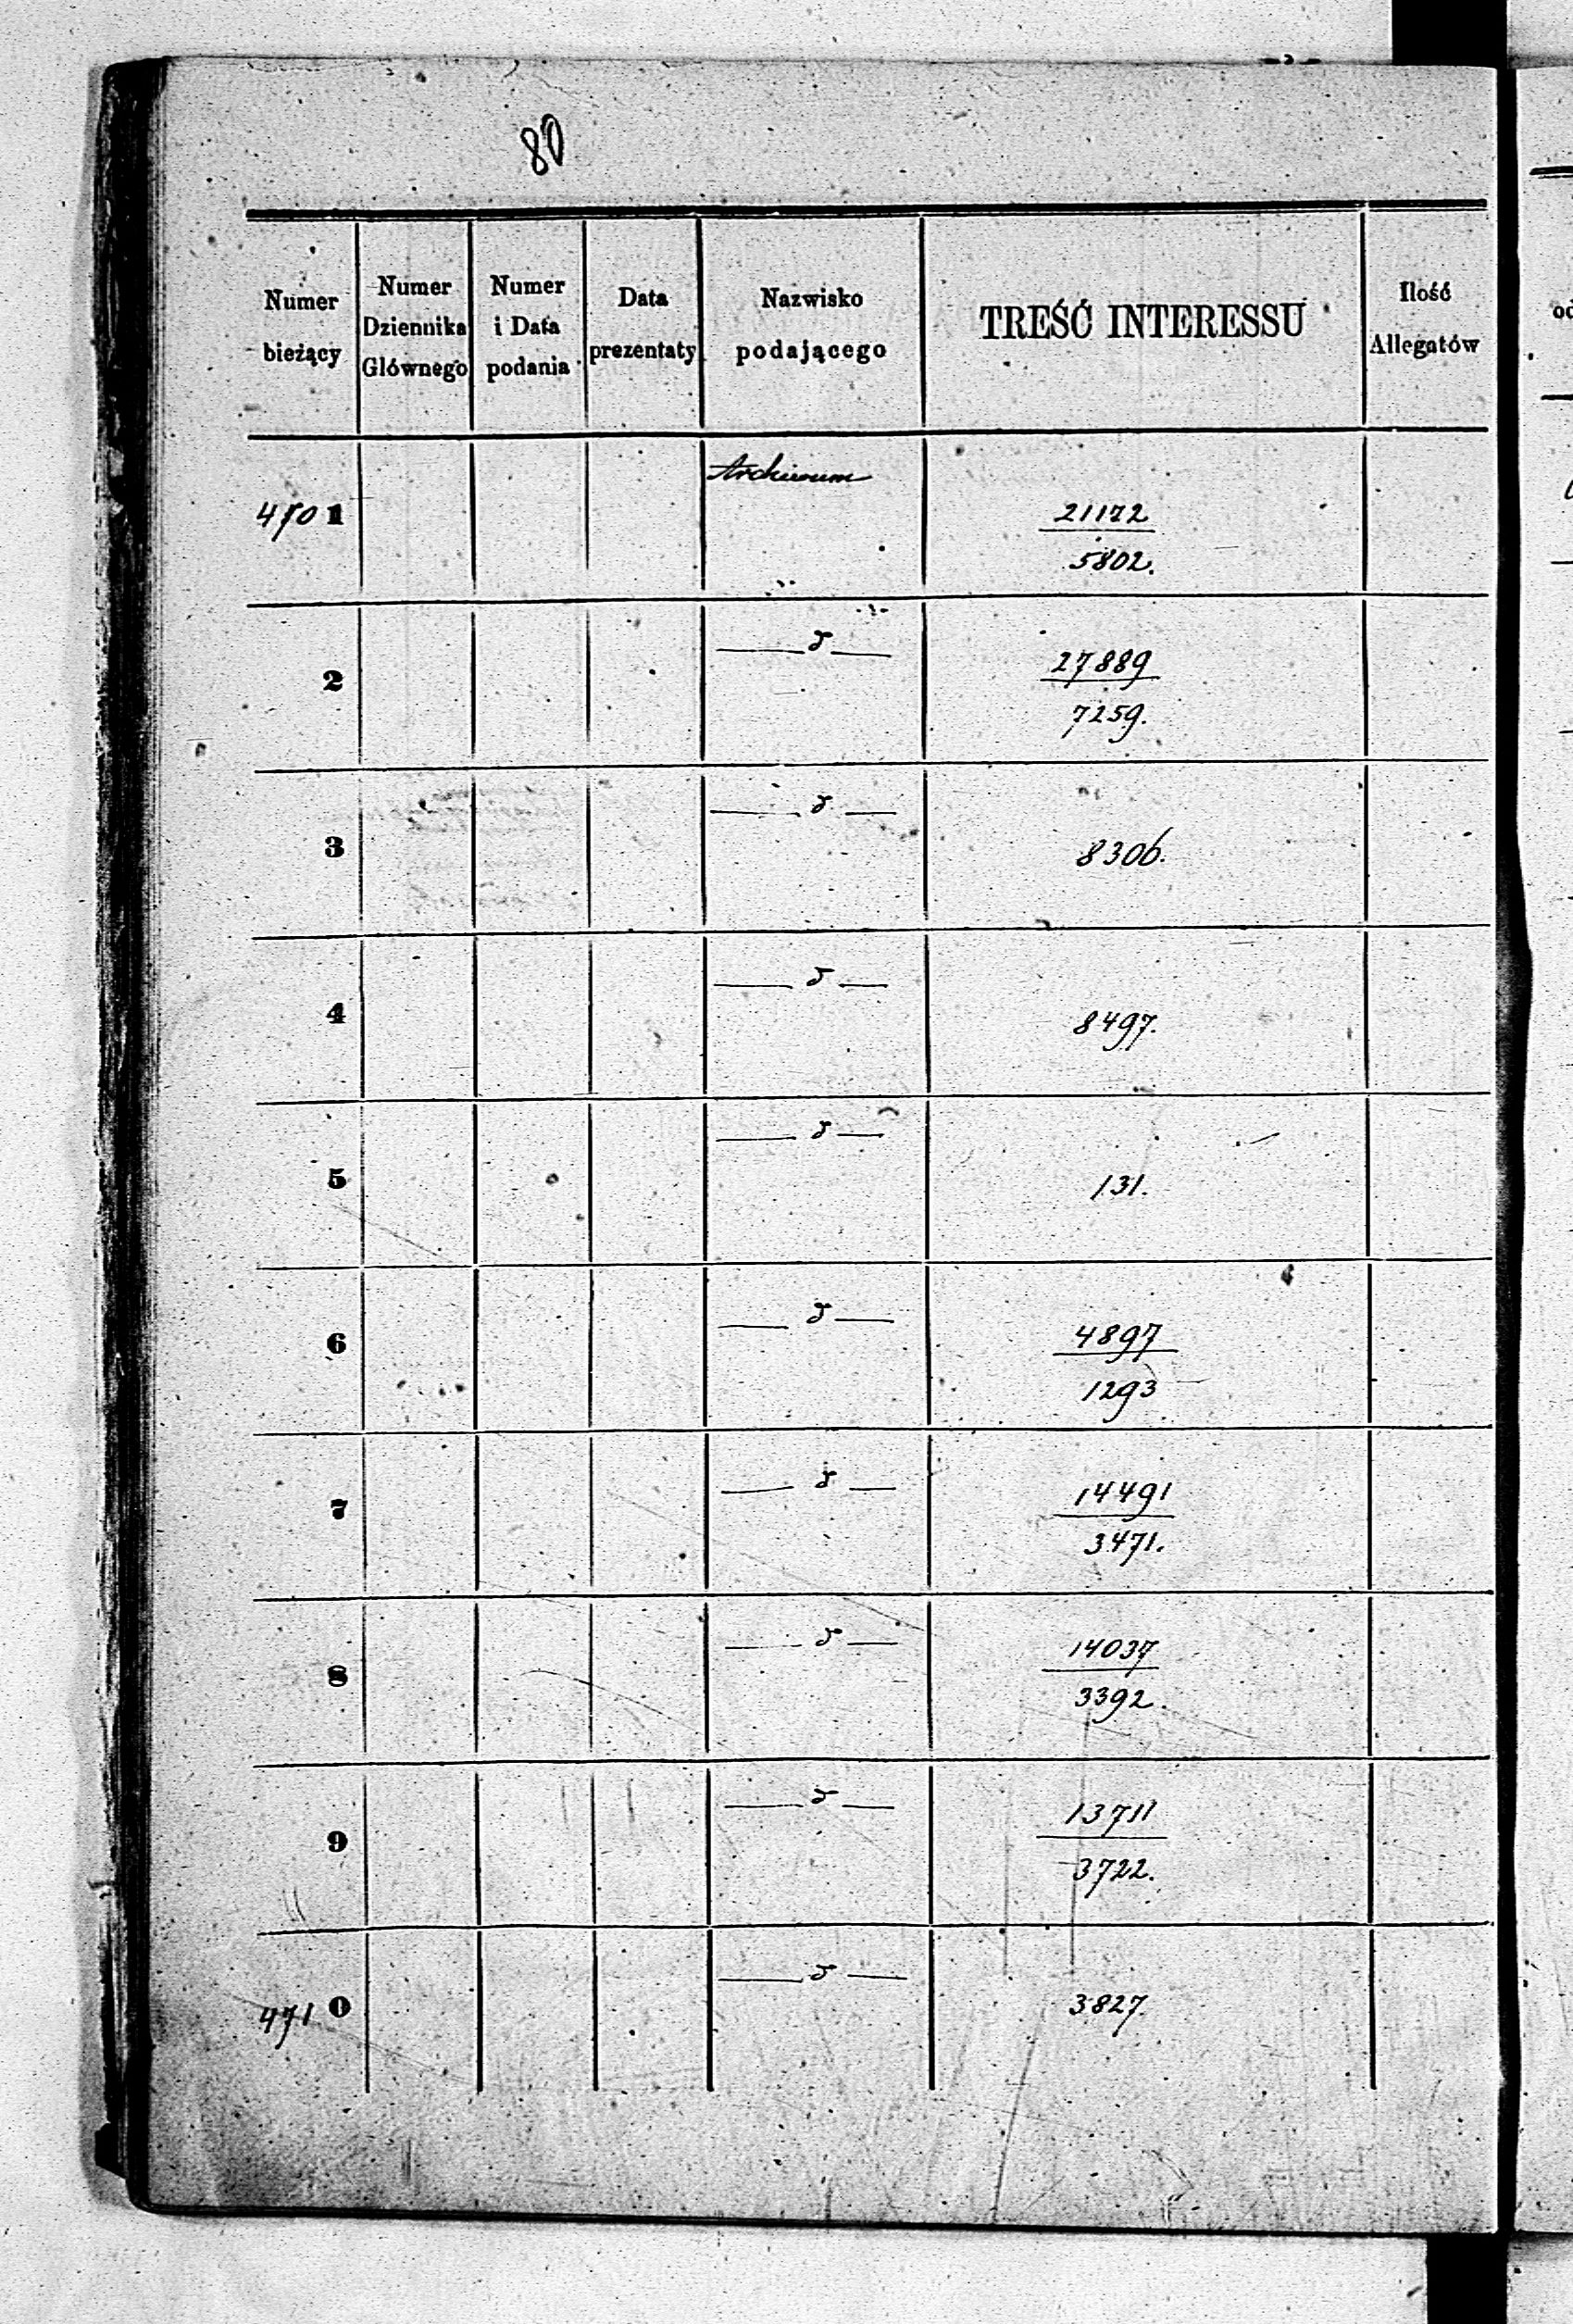 80
Numer bieżący
Numer Dziennika Głównego
Numer i Data podania
Data prezentaty
Nazwisko podającego
TREŚĆ INTERESSU
Ilość Allegatów
Archiwum
4701 21172
5802.
2 — d — 27889
7259.
3 — d — 8306.
4 — d — 8497.
5 — d — 131.
6 — d — 4897
1293
7 — d — 14491
3471.
8 — d — 14037
3392.
9 — d — 13711
3722.
4710 — d — 3827.